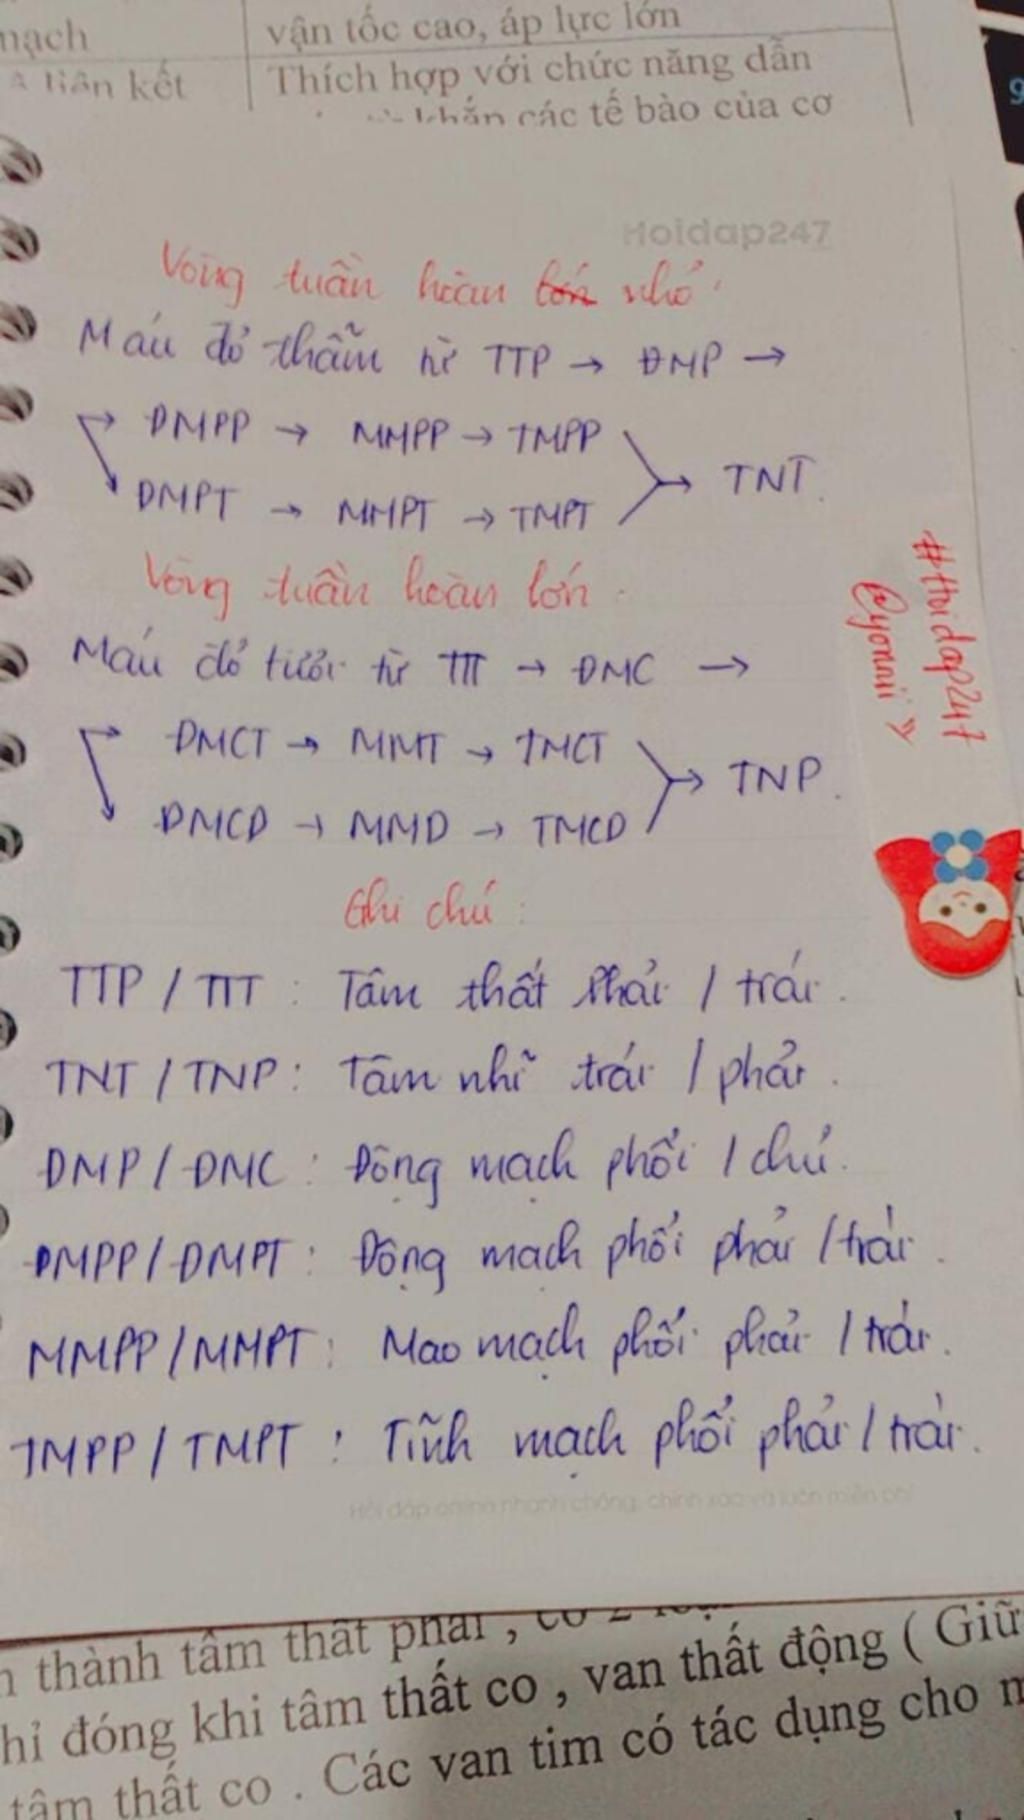 mạch
vận tốc cao, áp lực lớn
liên kết
Thích hợp với chức năng dẫn
khắp các tế bào của cơ
Hoidap247
Vòng tuần hoàn lớn nhỏ
Máu đỏ thẫm từ TTP → ĐMP →
ĐMPP → MMPP → TMPP
→ TNT.
ĐMPT → MMPT → TMPT
Vòng tuần hoàn lớn.
Máu đỏ tươi từ TTT → ĐMC →
ĐMCT → MMT → TMCT
→ TNP.
ĐMCD → MMD → TMCD
Ghi chú:
TTP / TTT : Tâm thất phải / trái.
TNT / TNP : Tâm nhĩ trái / phải.
ĐMP / ĐMC : Động mạch phổi / chủ.
ĐMPP / ĐMPT : Động mạch phổi phải / trái.
MMPP / MMPT : Mao mạch phổi phải / trái.
TMPP / TMPT : Tĩnh mạch phổi phải / trái.
#Hoidap247
@yonnii »
Hỏi đáp online nhanh chóng, chính xác và luôn miễn phí
thành tâm thất phải , có 2
chỉ đóng khi tâm thất co , van thất động ( Giữ
tâm thất co . Các van tim có tác dụng cho